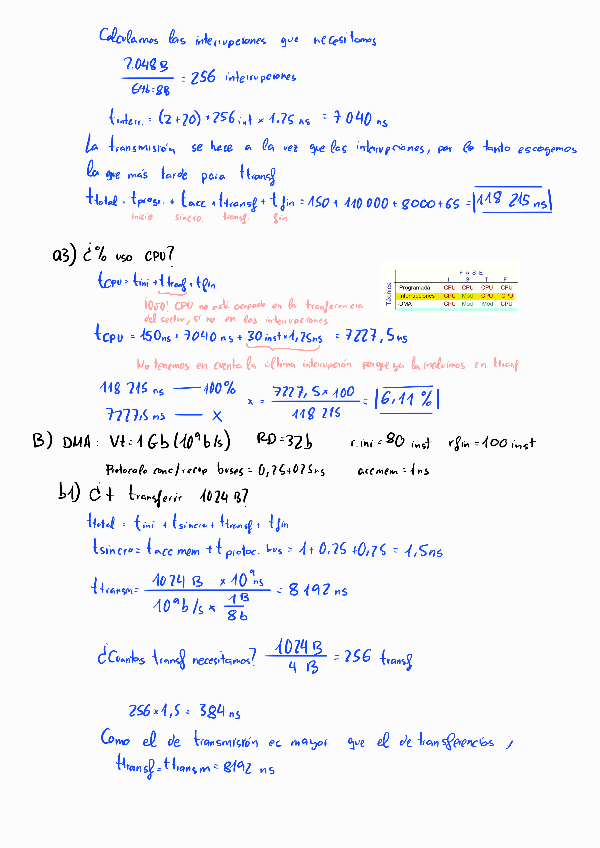 Calculamos las interrupciones que necesitamos
2.048 B
64b=8B
= 256 interrupciones
tinterr. = (2+20) * 256 int * 1.25 ns = 7 040 ns
La transmisión se hace a la vez que las interrupciones, por lo tanto escogemos
la que más tarde para ttransf
ttotal = tprogr. + tacc + ttransf + tfin = 150 + 110 000 + 8000 + 65 = 118 215 ns
inicio sincro. transf. fin
a3) ¿% uso CPU?
tCPU = tini + ttransf + tfin
CPU no está ocupado en la transferencia
del sector, sí no en las interrupciones
FASE
I S T F
Técnica
Programada CPU CPU CPU CPU
Interrupciones CPU Mod CPU CPU
DMA CPU Mod Mod CPU
tCPU = 150ns + 7040 ns + 30 inst * 1,25ns = 7227,5 ns
No tenemos en cuenta la última interrupción porque ya la incluimos en ttransf
118 215 ns — 100%
7227,5 ns — X
x = 7227,5 x 100
118 215
= 6,11 %
B) DMA: Vt = 1Gb (10⁹ b/s) RD = 32b r.ini = 80 inst rfin = 100 inst
Protocolo conc/recup buses = 0,25+0,25ns acc mem = 1ns
b1) ¿t transferir 1024 B?
ttotal = tini + tsincro + ttransf + tfin
tsincro = tacc mem + t protoc. bus = 1 + 0,25 + 0,25 = 1,5 ns
ttransm = 1024 B x 10⁹ ns
10⁹ b/s * 1B
8b
= 8192 ns
¿Cuantas transf necesitamos? 1024 B
4 B
= 256 transf
256 * 1,5 = 384 ns
Como el de transmisión es mayor que el de transferencias,
ttransf = ttransm = 8192 ns